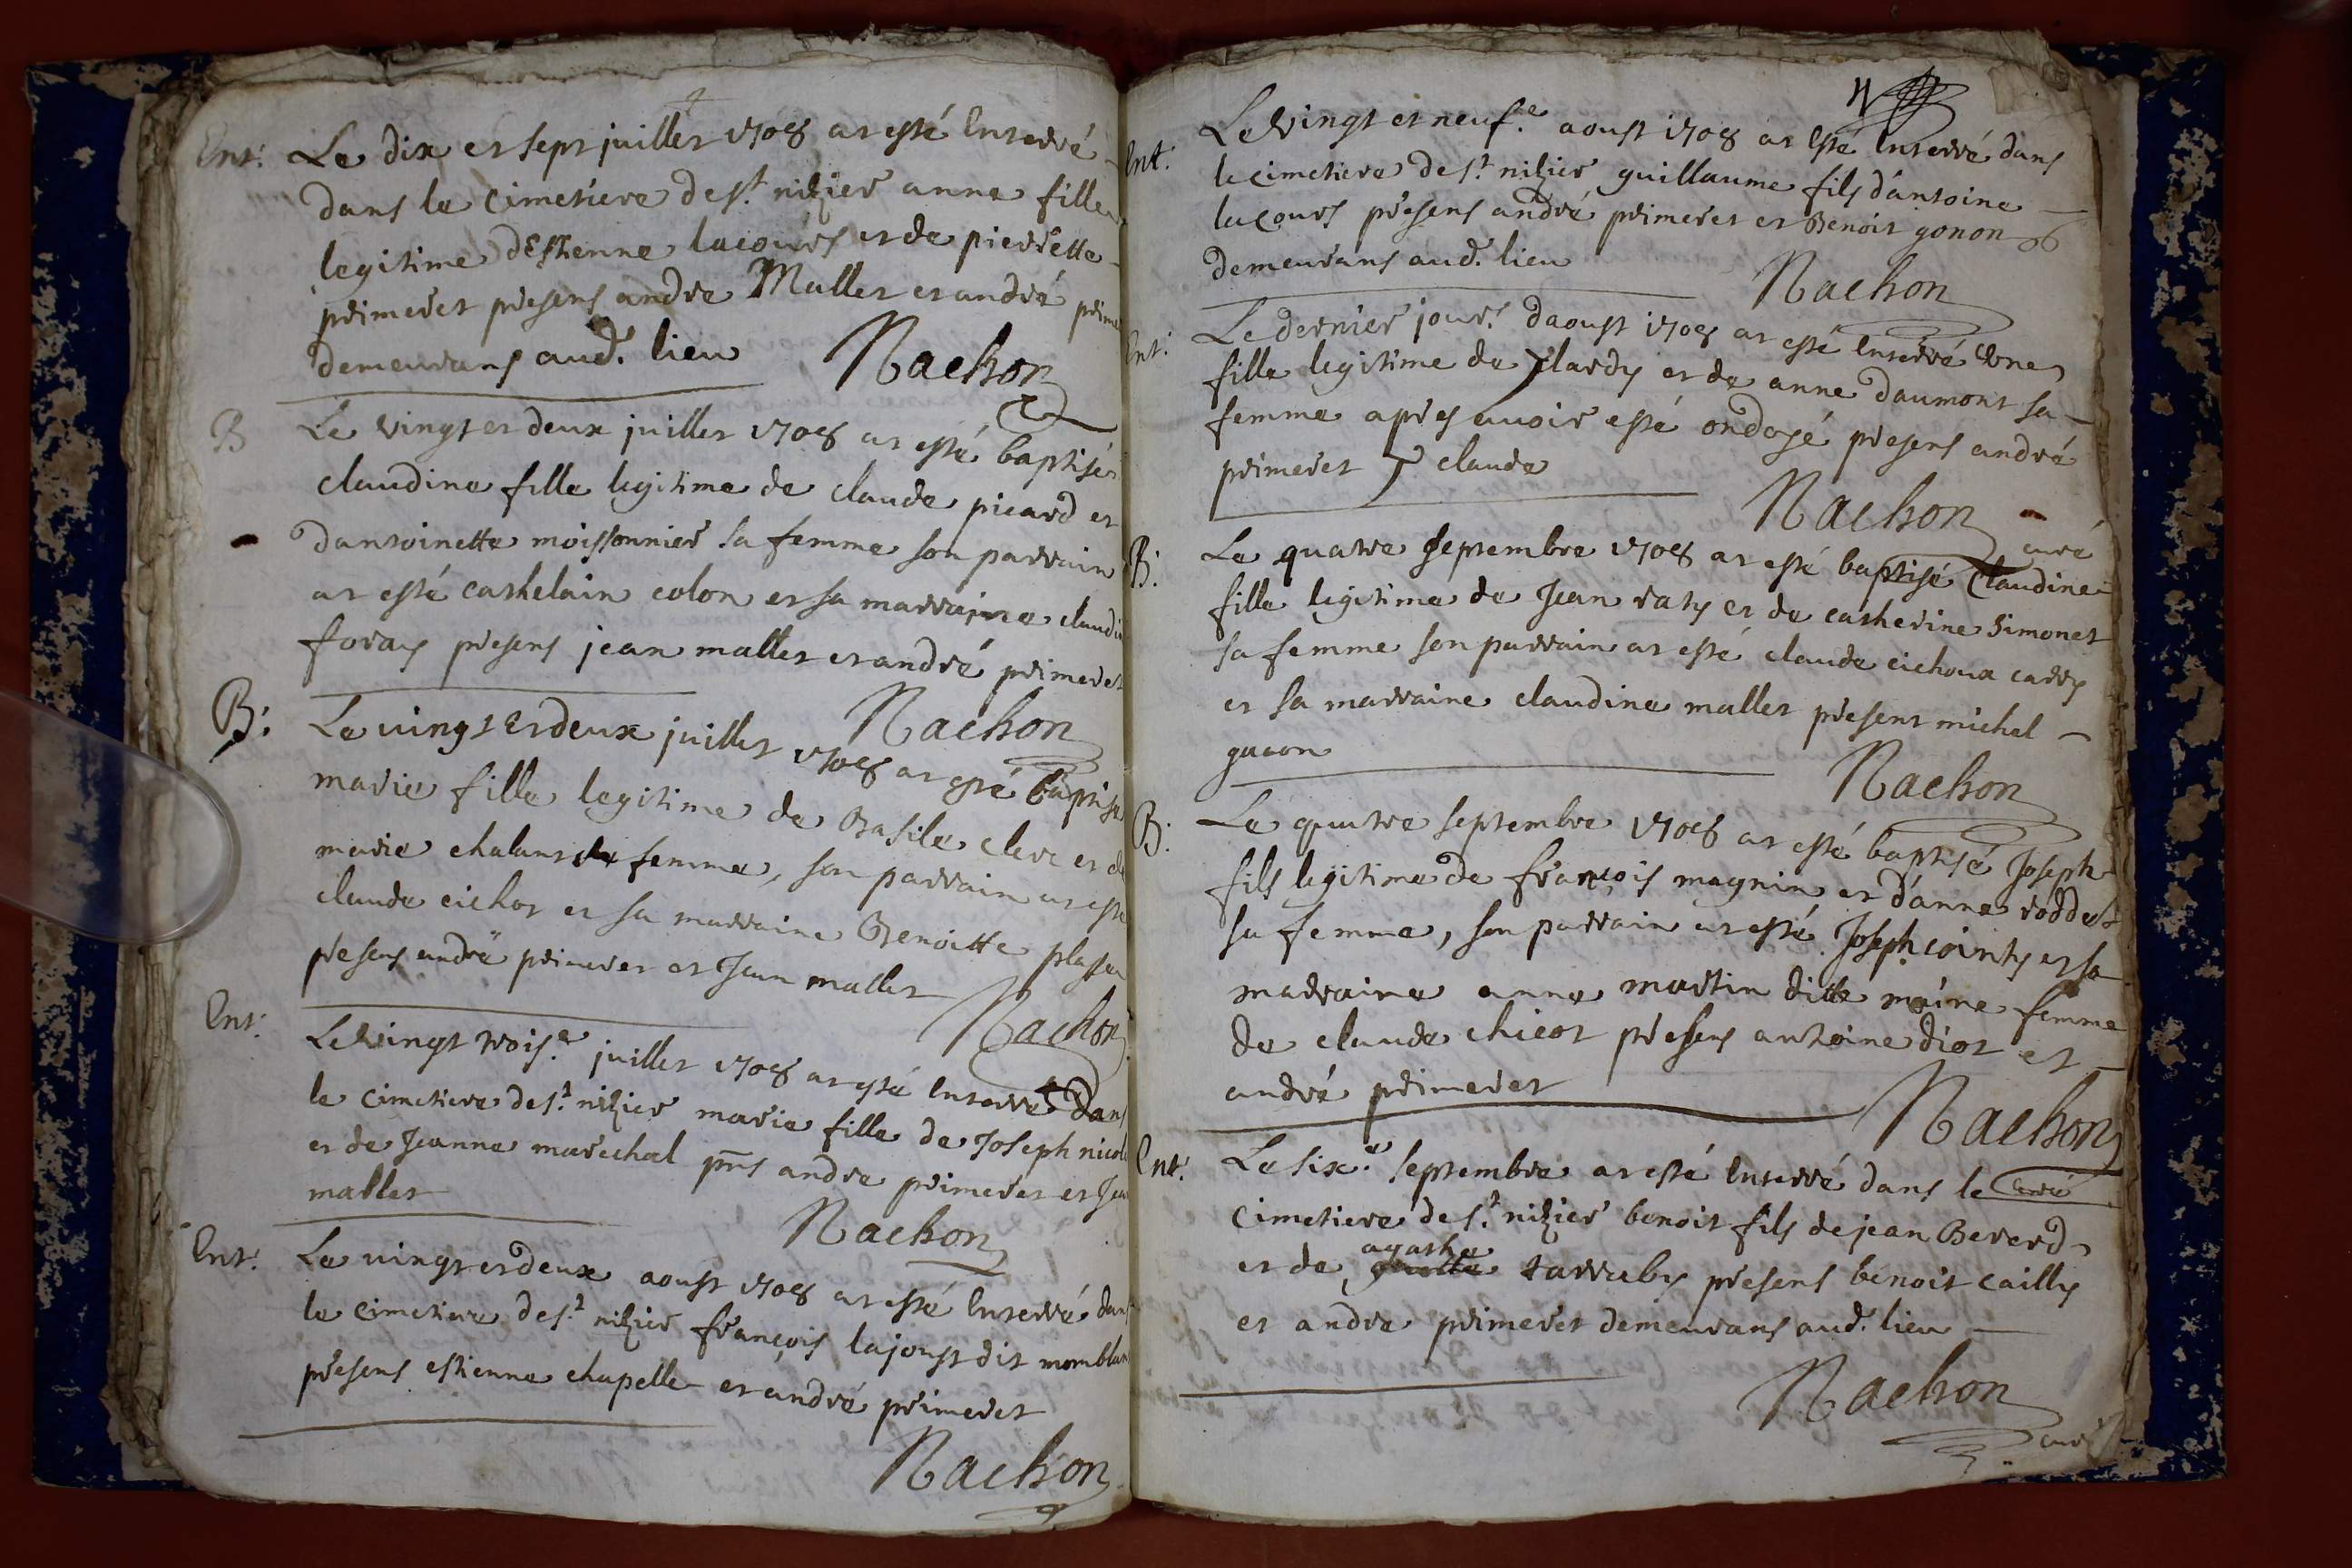 Ent: Le dix et sept juillet 1708 at esté Enterré
dans le cimetiere de st. nizier anne fille
legitime d'Estienne lacours et de pierrette
primeret presens andre Mallet et andré prime
demeurans aud. lieu Nachon
B Le vingt et deux juillet 1708 at esté baptisé
claudine fille legitime de claude picard et
dantoinette moissonnier sa femme son parrain
at esté cathelain colon et sa marraine claudi
foray presens jean mallet et andré primeret
Nachon
B: Le vingt et deux juillet 1708 at esté baptisé
marie fille legitime de Basile clerc et de
marie chalant sa femme, son parrain at esté
claude cichot et sa marraine Benoitte
presens andré primeret et Jean mallet
Nachon
Ent: Le vingt trois.e juillet 1708 at esté Enterré Dans
le cimetiere de st. nizier marie fille de Joseph nicol
et de Jeanne marechal pns andre primeret et Jea
mallet
Nachon
Ent: Le vingt et deux aoust 1708 at esté Enterré dans
le cimetiere de st. nizier françois lajoust dit momblan
presens estienne chapelle et andré primeret
Nachon
Ent: Le Vingt et neuf.e aoust 1708 at Esté Enterré dans
le cimetiere de st. nizier guillaume fils d'antoine
lacours presens andré primeret et Benoit gonon
demeurans aud. lieu
Nachon
Ent: Le dernier jour daoust 1708 at esté Enterré Une
fille legitime de Jlardy et de anne daumont sa
femme apres avoir esté ondoyé presens andré
primeret claude
Nachon
curé
B: Le quatre Septembre 1708 at esté baptisé Claudine
fille legitime de Jean raty et de catherine Simonet
sa femme son parrain at esté claude cichoux cadry
et sa marraine claudine mallet present michel
gacon
Nachon
B: Le quatre septembre 1708 at esté baptisé Joseph
fils legitime de françois magnin et d'anne roddet
sa femme, son parrain at esté Joseph cointy et sa
marraine anne martin ditte moine femme
de claude chicot presens antoine diot et
andré primeret
Nachon
curé
Ent: Le six.e septembre at esté Enterré dans le
cimetiere de st. nizier benoit fils de jean Bererd
et de agathe tarraby presens benoit cailly
et andre primeret demeurans aud. lieu
Nachon
curé